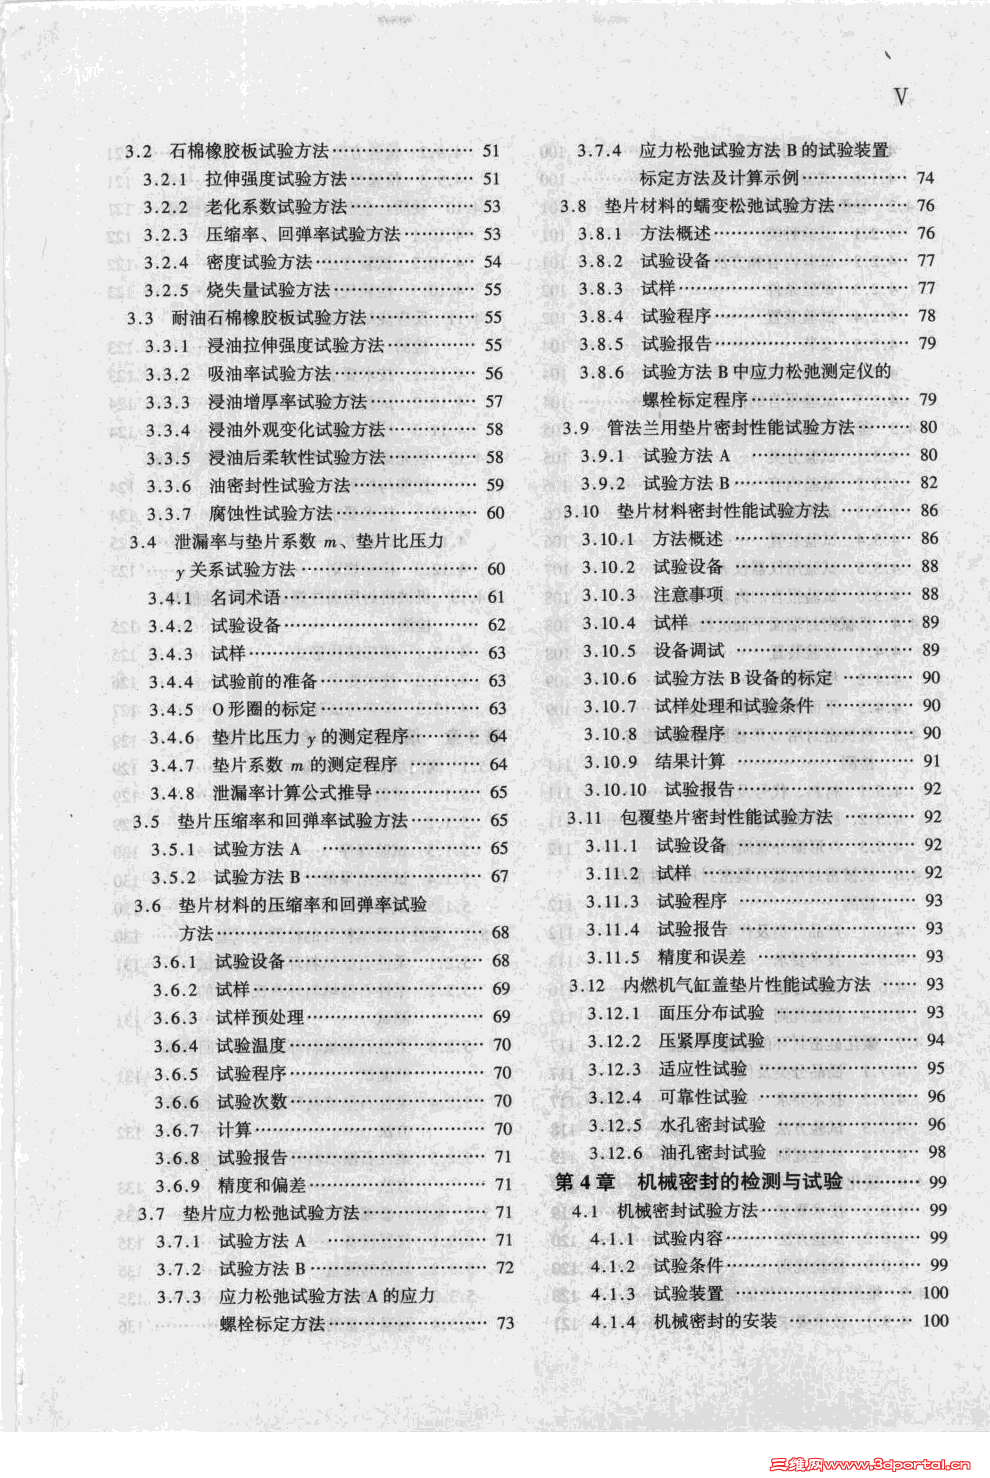 V
3.2 石棉橡胶板试验方法………………… 51
3.2.1 拉伸强度试验方法……………… 51
3.2.2 老化系数试验方法……………… 53
3.2.3 压缩率、回弹率试验方法……… 53
3.2.4 密度试验方法…………………… 54
3.2.5 烧失量试验方法………………… 55
3.3 耐油石棉橡胶板试验方法…………… 55
3.3.1 浸油拉伸强度试验方法………… 55
3.3.2 吸油率试验方法………………… 56
3.3.3 浸油增厚率试验方法…………… 57
3.3.4 浸油外观变化试验方法………… 58
3.3.5 浸油后柔软性试验方法………… 58
3.3.6 油密封性试验方法……………… 59
3.3.7 腐蚀性试验方法………………… 60
3.4 泄漏率与垫片系数 m、垫片比压力
y 关系试验方法……………………… 60
3.4.1 名词术语………………………… 61
3.4.2 试验设备………………………… 62
3.4.3 试样……………………………… 63
3.4.4 试验前的准备…………………… 63
3.4.5 O形圈的标定…………………… 63
3.4.6 垫片比压力 y 的测定程序……… 64
3.4.7 垫片系数 m 的测定程序 ……… 64
3.4.8 泄漏率计算公式推导…………… 65
3.5 垫片压缩率和回弹率试验方法……… 65
3.5.1 试验方法 A ……………………… 65
3.5.2 试验方法 B……………………… 67
3.6 垫片材料的压缩率和回弹率试验
方法…………………………………… 68
3.6.1 试验设备………………………… 68
3.6.2 试样……………………………… 69
3.6.3 试样预处理……………………… 69
3.6.4 试验温度………………………… 70
3.6.5 试验程序………………………… 70
3.6.6 试验次数………………………… 70
3.6.7 计算……………………………… 70
3.6.8 试验报告………………………… 71
3.6.9 精度和偏差……………………… 71
3.7 垫片应力松弛试验方法……………… 71
3.7.1 试验方法 A ……………………… 71
3.7.2 试验方法 B……………………… 72
3.7.3 应力松弛试验方法 A 的应力
螺栓标定方法…………………… 73
3.7.4 应力松弛试验方法 B 的试验装置
标定方法及计算示例…………… 74
3.8 垫片材料的蠕变松弛试验方法……… 76
3.8.1 方法概述………………………… 76
3.8.2 试验设备………………………… 77
3.8.3 试样……………………………… 77
3.8.4 试验程序………………………… 78
3.8.5 试验报告………………………… 79
3.8.6 试验方法 B 中应力松弛测定仪的
螺栓标定程序…………………… 79
3.9 管法兰用垫片密封性能试验方法…… 80
3.9.1 试验方法 A ……………………… 80
3.9.2 试验方法 B……………………… 82
3.10 垫片材料密封性能试验方法 ……… 86
3.10.1 方法概述 ……………………… 86
3.10.2 试验设备 ……………………… 88
3.10.3 注意事项 ……………………… 88
3.10.4 试样 …………………………… 89
3.10.5 设备调试 ……………………… 89
3.10.6 试验方法 B 设备的标定 ……… 90
3.10.7 试样处理和试验条件 ………… 90
3.10.8 试验程序 ……………………… 90
3.10.9 结果计算 ……………………… 91
3.10.10 试验报告……………………… 92
3.11 包覆垫片密封性能试验方法 ……… 92
3.11.1 试验设备 ……………………… 92
3.11.2 试样 …………………………… 92
3.11.3 试验程序 ……………………… 93
3.11.4 试验报告 ……………………… 93
3.11.5 精度和误差 …………………… 93
3.12 内燃机气缸盖垫片性能试验方法 …… 93
3.12.1 面压分布试验 ………………… 93
3.12.2 压紧厚度试验 ………………… 94
3.12.3 适应性试验 …………………… 95
3.12.4 可靠性试验 …………………… 96
3.12.5 水孔密封试验 ………………… 96
3.12.6 油孔密封试验 ………………… 98
第 4 章 机械密封的检测与试验………… 99
4.1 机械密封试验方法…………………… 99
4.1.1 试验内容………………………… 99
4.1.2 试验条件………………………… 99
4.1.3 试验装置 ……………………… 100
4.1.4 机械密封的安装 ……………… 100
三维网www.3dportal.cn